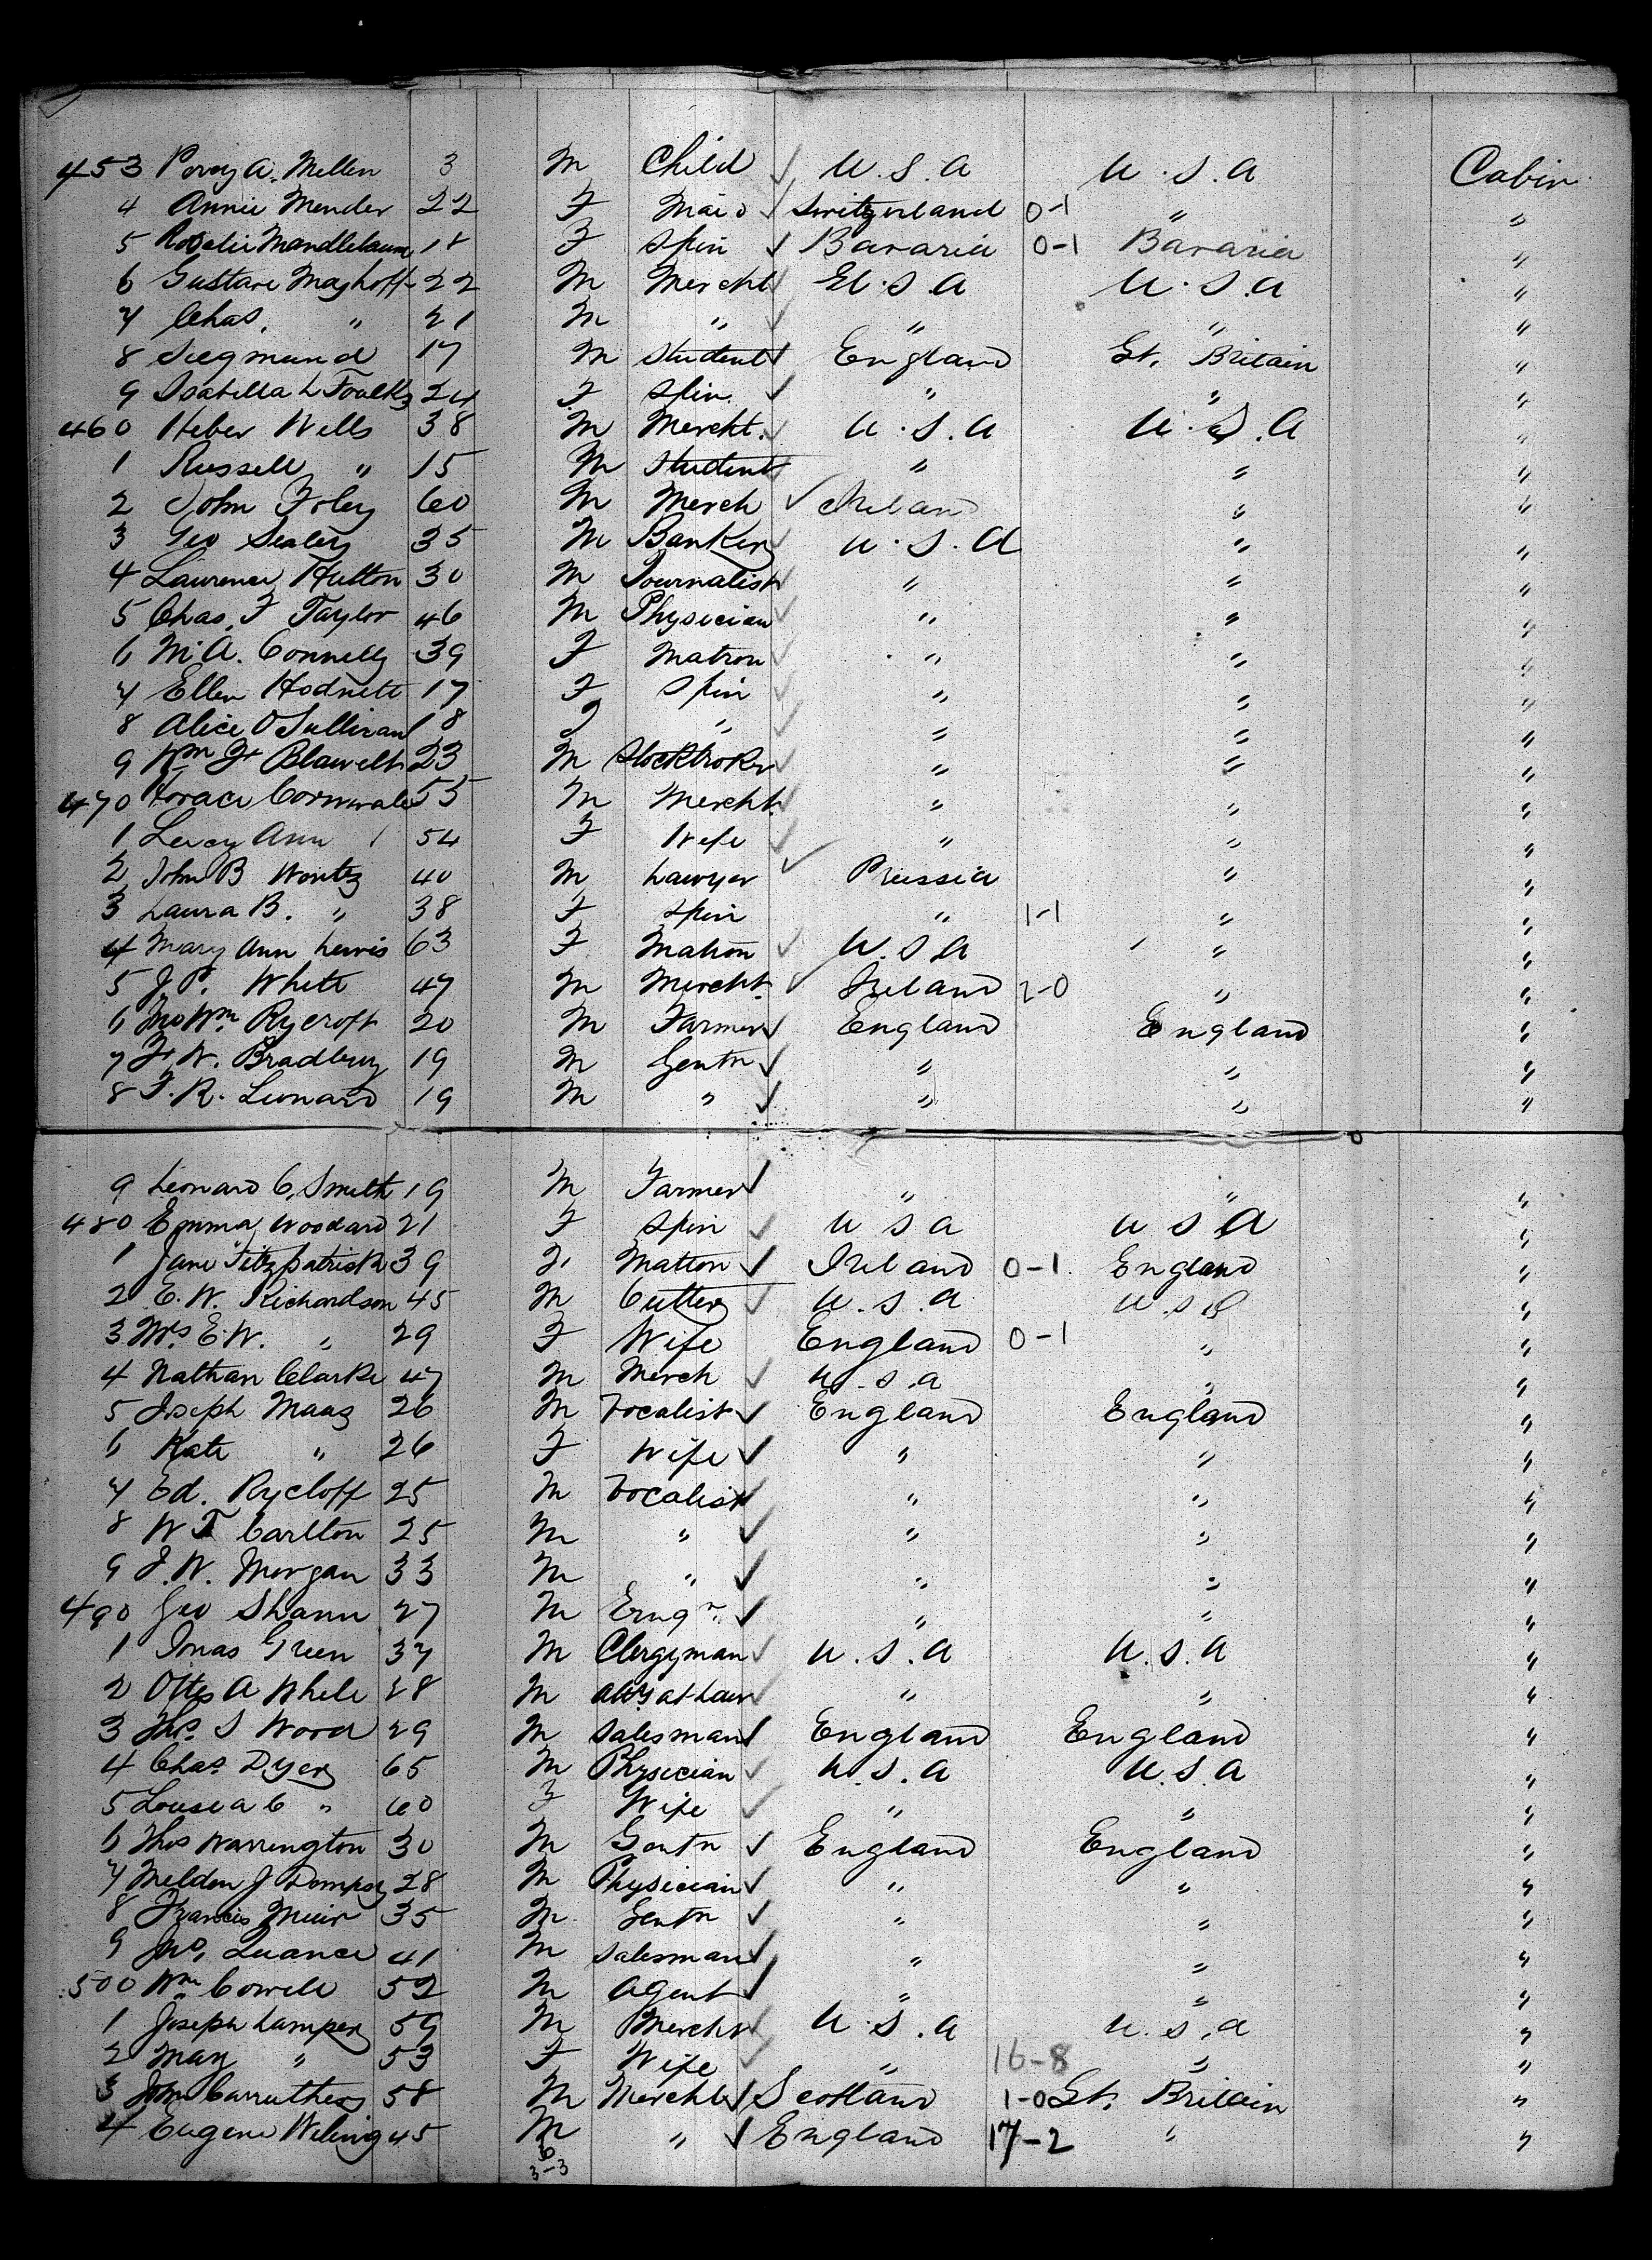 453 Percy A. Mellen 3 M Child ✓ U.S.A U.S.A Cabin
4 Annie Mender 22 F Maid ✓ Switzerland 0-1 " "
5 Rosalie Mandlebaum 18 F Spin ✓ Bavaria 0-1 Bavaria "
6 Gustave Mayhoff 22 M Mercht ✓ U.S.A U.S.A "
7 Chas. " 21 M " ✓ " " "
8 Siegmund 17 M Student ✓ England Gt. Britain "
9 Isabella L 24 F Spin. ✓ " " "
460 Heber Wells 38 M Mercht. ✓ U.S.A U.S.A "
1 Russell " 15 M Student " " "
2 John Foley 60 M Merch ✓ Ireland " "
3 Geo Sealey 35 M Banker ✓ U.S.A " "
4 Laurence Hutton 30 M Journalist ✓ " " "
5 Chas. F Taylor 46 M Physician ✓ " " "
6 M.A. Connelly 39 F Matron ✓ " " "
7 Ellen Hodnett 17 F Spin ✓ " " "
8 Alice O Sullivan 18 F " ✓ " " "
9 Wm F Blauvelt 23 M Stockbroker ✓ " " "
470 Horace 55 M Mercht. ✓ " " "
1 Lucy Ann 54 F Wife ✓ " " "
2 John B 40 M Lawyer ✓ Prussia " "
3 Laura B. " 38 F Spin " 1-1 " "
4 Mary Ann Lewis 63 F Matron ✓ U.S.A " "
5 J.P. White 47 M Mercht. ✓ Ireland 2-0 " "
6 Jno Wm. Rycroft 20 M Farmer ✓ England England "
7 F.W. Bradbury 19 M Gentn ✓ " " "
8 F.R. Leonard 19 M " ✓ " " "
9 Leonard C. Smith 19 M Farmer ✓ " " "
480 Emma Woodard 21 F Spin ✓ U S A U S A "
1 Jane Fitzpatrick 39 F Matron ✓ Ireland 0-1 England "
2 E.W. Richardson 45 M Cutter ✓ U.S.A U.S.A "
3 Mrs E.W. " 29 F Wife England 0-1 " "
4 Nathan Clarke 47 M Merch ✓ U.S.A " "
5 Joseph Maas 26 M Vocalist ✓ England England "
6 Kate " 26 F Wife ✓ " " "
7 Ed. Rycloff 25 M Vocalist ✓ " " "
8 W T Carlton 25 M " ✓ " " "
9 J.W. Morgan 33 M " ✓ " " "
490 Geo Shann 27 M Engr. ✓ " " "
1 Jonas Green 37 M Clergyman ✓ U.S.A U.S.A "
2 Otto A 28 M Atty at Law ✓ " " "
3 Thos. S Wood 29 M Salesman ✓ England England "
4 Chas. Dyer 65 M Physician ✓ U.S.A U.S.A "
5 Louisa C " 60 F Wife ✓ " " "
6 Thos Warrington 30 M Gentn ✓ England England "
7 J Dempsey 28 M Physician ✓ " " "
8 Francis Muir 35 M Gentn ✓ " " "
9 Jno. Quance 41 M Salesman ✓ " " "
500 Wm Cowell 52 M Agent ✓ " " "
1 Joseph Lamper 59 M Mercht ✓ U.S.A U.S.A "
2 Mary " 53 F Wife ✓ " 16-8 " "
3 Jno Carruthers 58 M Mercht ✓ Scotland 1-0 Gt. Britain "
4 Eugene 45 M " ✓ England 17-2 " "
6
3-3